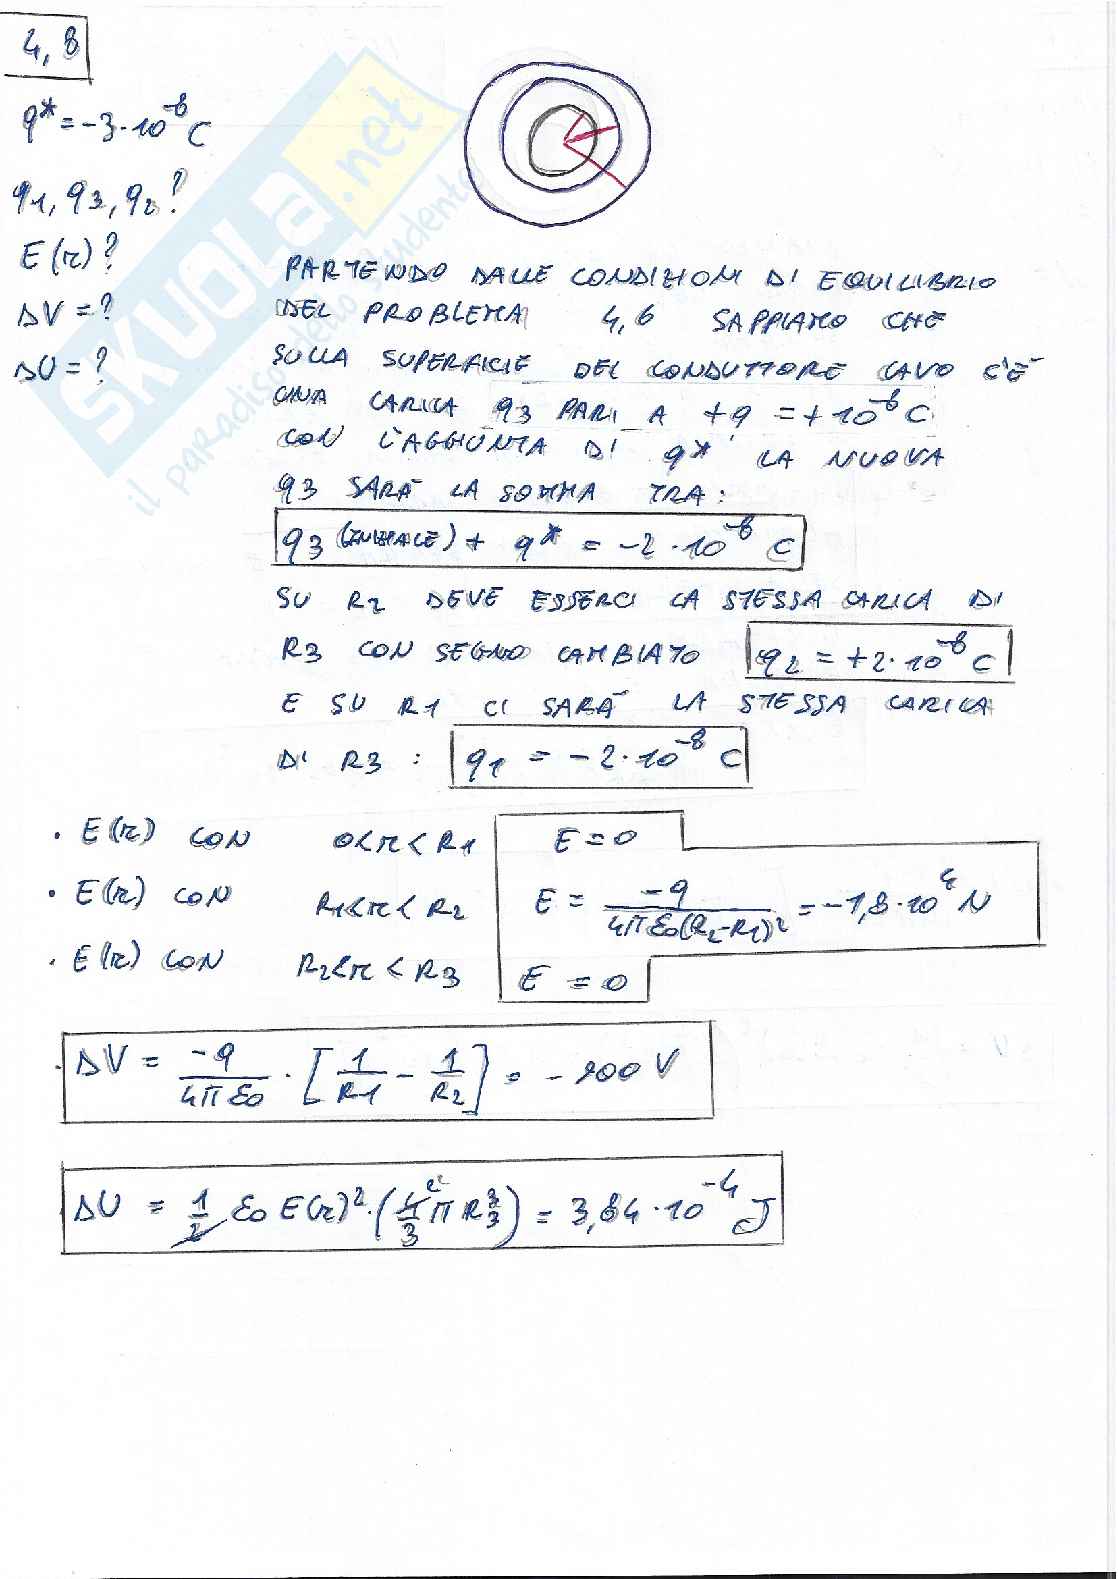 4,8
q* = -3·10⁻⁸ C
q1, q3, q2 ?
E(r) ?
ΔV = ?
ΔU = ?
PARTENDO DALLE CONDIZIONI DI EQUILIBRIO
DEL PROBLEMA 4,6 SAPPIAMO CHE
SULLA SUPERFICIE DEL CONDUTTORE CAVO C'È
UNA CARICA q3 PARI A +q = +10⁻⁸ C
CON L'AGGIUNTA DI q* LA NUOVA
q3 SARÀ LA SOMMA TRA:
q3 (INIZIALE) + q* = -2·10⁻⁸ C
SU R2 DEVE ESSERCI LA STESSA CARICA DI
R3 CON SEGNO CAMBIATO q2 = +2·10⁻⁸ C
E SU R1 CI SARÀ LA STESSA CARICA
DI R3 : q1 = -2·10⁻⁸ C
· E(r) CON 0<r<R1 E = 0
· E(r) CON R1<r<R2 E = -q / 4πε0(R2-R1)² = -1,8·10⁴ N
· E(r) CON R2<r<R3 E = 0
· ΔV = -q / 4πε0 · [1/R1 - 1/R2] = -900 V
ΔU = 1/2 ε0 E(r)² · (4/3 π R3³) = 3,84·10⁻⁴ J
SKUOLA.net
il paradiso dello studente